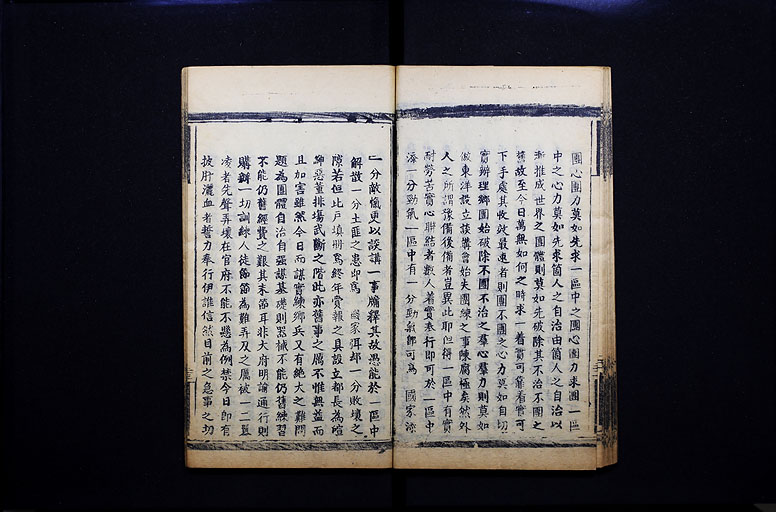 團心團力莫如先求一區中之團心團力求團一區
中之心力莫如先求箇人之自治由箇人之自治以
漸推成世界之團體則莫如先破除其不治不團之
舊故至今日萬無如何之時求一着實可循看實可
下手處其收效最速者則團不團之心力莫如自切
實辦理鄉團始破除不團不治之羣心羣力則莫如
倣東洋設立談講會始夫團練之事陳腐極矣然外
人之所謂豫備後備者豈異此耶但得一區中有實
耐勞苦實心聯結者數人着實奉行即可於一區中
添一分勁氣一區中有一分勁氣即可為 國家添
一分敵愾更以談講一事牖釋其故愚能於一區中
解散一分土匪之患即為 國家弭却一分敗壞之
隙若但此戶填冊為終年賞報之具設立都長為喧
鄉惡董排場武斷之階此亦舊事之厲不惟無益而
且加害雖然今日而謀實練鄉兵又有絕大之難問
題為團體自治自強謀基礎則器械不能仍舊練習
不能仍舊經費之艱其末節耳非大府明諭通行則
購辦一切訓練人徒節節為難弄及之厲被一二囂
凌者先聲弄壞在官府不能不懸為例禁今日即有
披肝瀝血者誓力奉行伊誰信然目前之急事之切